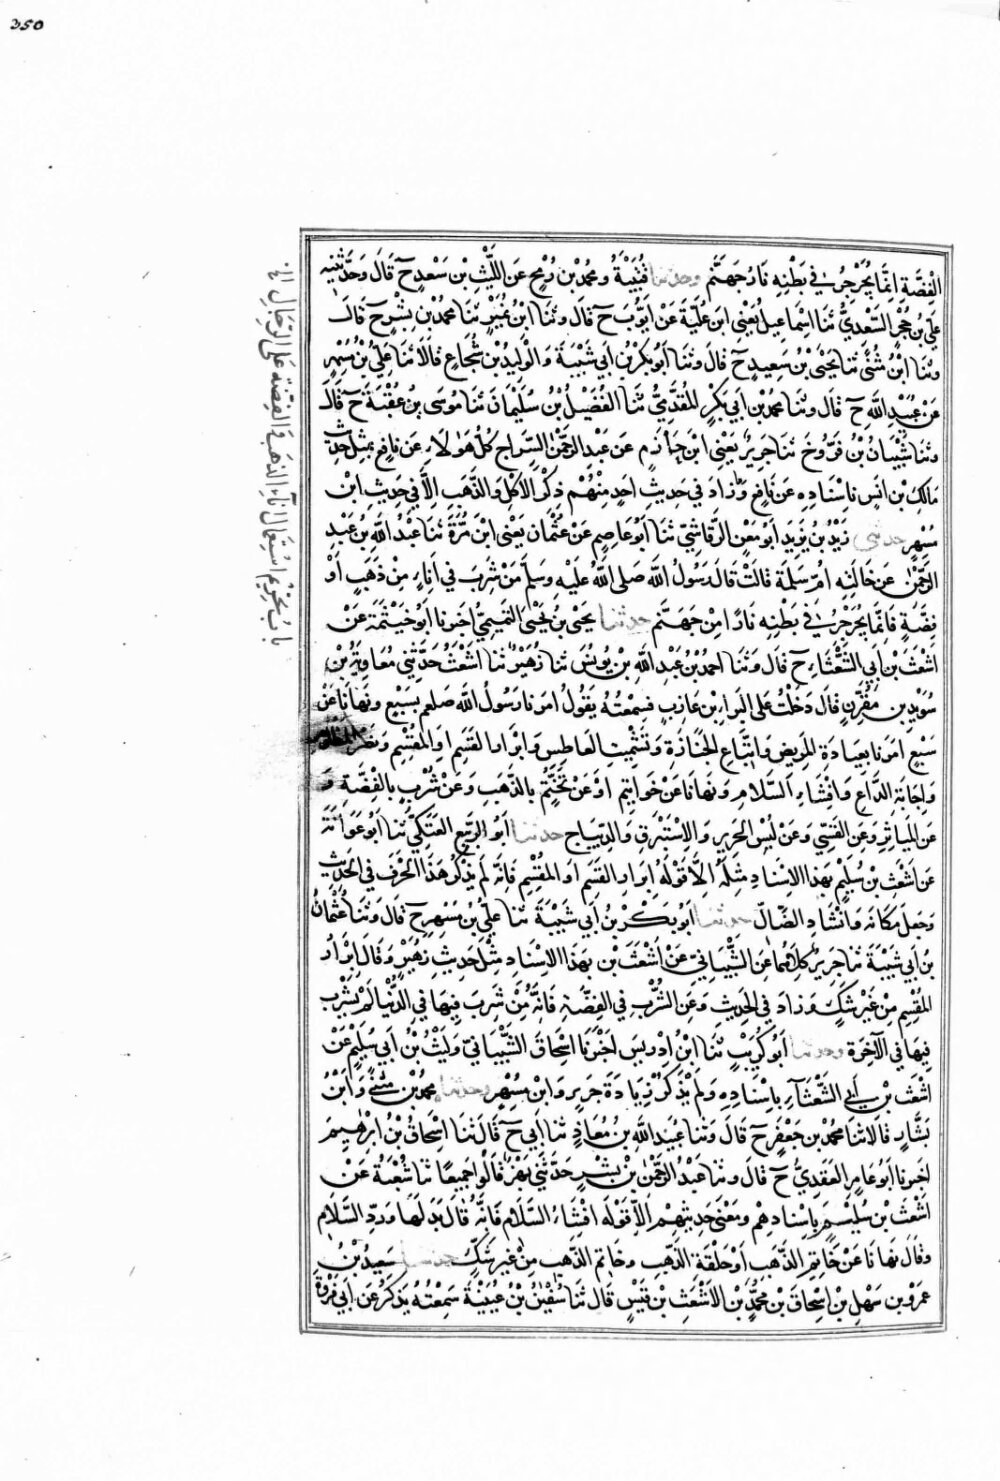 350
الْفِضَّةِ اِنَّمَا يُجَرْجِرُ فِي بَطْنِهِ نَارُ جَهَنَّم وحدثنا قُتَيْبَةُ ومحمد بن رُمْحٍ عَنِ اللَّيْثِ بْنِ سَعْدٍ ح قَالَ وَحَدَّثَنِيهِ
عَلِيُّ بْنُ حُجْرٍ السَّعْدِيُّ ثَنَا اِسْمَاعِيلُ يَعْنِي ابْنَ عُلَيَّةَ عَنْ اَيُّوبَ ح قَالَ وَثَنَا ابْنُ نُمَيْرٍ ثَنَا مُحَمَّدُ بْنُ بِشْرٍ ح قَالَ
وثَنَا ابْنُ مُثَنّٰى ثَنَا يَحْيَى بْنُ سَعِيدٍ ح قَالَ وَثَنَا اَبُو بَكْرِ بْنُ اَبِي شَيْبَةَ وَالْوَلِيدُ بْنُ شُجَاعٍ قَالَا ثَنَا عَلِيُّ بْنُ مُسْهِرٍ
عَنْ عُبَيْدِ اللَّهِ ح قَالَ وَثَنَا مُحَمَّدُ بْنُ اَبِي بَكْرٍ الْمُقَدَّمِيُّ ثَنَا الْفُضَيْلُ بْنُ سُلَيْمَانَ ثَنَا مُوسَى بْنُ عُقْبَةَ ح قَالَ
وثَنَا شَيْبَانُ بْنُ فَرُّوخَ ثَنَا جَرِيرٌ يَعْنِي ابْنَ حَازِمٍ عَنْ عَبْدِ الرَّحْمٰنِ السَّرَّاجِ كُلُّ هَؤُلَاءِ عَنْ نَافِعٍ بِمِثْلِ حَدِيثِ
مَالِكِ بْنِ اَنَسٍ بِاِسْنَادِهِ عَنْ نَافِعٍ وَزَادَ فِي حَدِيثِ اَحَدٍ مِنْهُمْ ذِكْرُ الْاَكْلِ وَالذَّهَبِ اِلَّا فِي حَدِيثِ ابْنِ
مُسْهِرٍ حدثني زَيْدُ بْنُ يَزِيدَ اَبُو مَعْنٍ الرَّقَاشِيُّ ثَنَا اَبُو عَاصِمٍ عَنْ عُثْمَانَ يَعْنِي ابْنَ مُرَّةَ ثَنَا عَبْدُ اللَّهِ بْنُ عَبْدِ
الرَّحْمٰنِ عَنْ خَالَتِهِ اُمِّ سَلَمَةَ قَالَتْ قَالَ رَسُولُ اللَّهِ صَلَّى اللَّهُ عَلَيْهِ وَسَلَّمَ مَنْ شَرِبَ فِي اِنَاءٍ مِنْ ذَهَبٍ اَوْ
فِضَّةٍ فَاِنَّمَا يُجَرْجِرُ فِي بَطْنِهِ نَارًا مِنْ جَهَنَّم حدثنا يَحْيَى بْنُ يَحْيَى التَّمِيمِيُّ اَخبرنا اَبُو خَيْثَمَةَ عَنْ
اَشْعَثَ بْنِ اَبِي الشَّعْثَاءِ ح قَالَ وَثَنَا اَحْمَدُ بْنُ عَبْدِ اللَّهِ بْنِ يُونُسَ ثَنَا زُهَيْرٌ ثَنَا اَشْعَثُ حَدَّثَنِي مُعَاوِيَةُ بْنُ
سُوَيْدِ بْنِ مُقَرِّنٍ قَالَ دَخَلْتُ عَلَى الْبَرَاءِ بْنِ عَازِبٍ فَسَمِعْتُهُ يَقُولُ اَمَرَنَا رَسُولُ اللَّهِ صلعم بِسَبْعٍ وَنَهَانَا عَنْ
سَبْعٍ اَمَرَنَا بِعِيَادَةِ الْمَرِيضِ وَاتِّبَاعِ الْجَنَازَةِ وَتَشْمِيتِ الْعَاطِسِ وَاِبْرَارِ الْقَسَمِ اَوِ الْمُقْسِمِ وَنَصْرِ الْمَظْلُومِ
وَاِجَابَةِ الدَّاعِ وَاِفْشَاءِ السَّلَامِ وَنَهَانَا عَنْ خَوَاتِيمَ اَوْ عَنْ تَخَتُّمٍ بِالذَّهَبِ وَعَنْ شُرْبٍ بِالْفِضَّةِ وَ
عَنِ الْمَيَاثِرِ وَعَنِ الْقَسِّيِّ وَعَنْ لُبْسِ الْحَرِيرِ وَالْاِسْتَبْرَقِ وَالدِّيبَاجِ حدثنا اَبُو الرَّبِيعِ الْعَتَكِيُّ ثَنَا اَبُو عَوَانَةَ
عَنْ اَشْعَثَ بْنِ سُلَيْمٍ بِهَذَا الْاِسْنَادِ مِثْلَهُ اِلَّا قَوْلَهُ اِبْرَارِ الْقَسَمِ اَوِ الْمُقْسِمِ فَاِنَّهُ لَمْ يَذْكُرْ هَذَا الْحَرْفَ فِي الْحَدِيثِ
وَجَعَلَ مَكَانَهُ وَاِنْشَادِ الضَّالِّ حدثنا اَبُو بَكْرِ بْنُ اَبِي شَيْبَةَ ثَنَا عَلِيُّ بْنُ مُسْهِرٍ ح قَالَ وَثَنَا عُثْمَانُ
بْنُ اَبِي شَيْبَةَ ثَنَا جَرِيرٌ كِلَاهُمَا عَنِ الشَّيْبَانِيِّ عَنْ اَشْعَثَ بْنِ بِهَذَا الْاِسْنَادِ مِثْلَ حَدِيثِ زُهَيْرٍ وَقَالَ اِبْرَارِ
الْمُقْسِمِ مِنْ غَيْرِ شَكٍّ وَزَادَ فِي الْحَدِيثِ وَعَنِ الشُّرْبِ فِي الْفِضَّةِ فَاِنَّهُ مَنْ شَرِبَ فِيهَا فِي الدُّنْيَا لَمْ يَشْرَبْ
فِيهَا فِي الْآخِرَةِ وحدثنا اَبُو كُرَيْبٍ ثَنَا ابْنُ اِدْرِيسَ اَخْبَرَنَا اِسْحَاقُ الشَّيْبَانِيُّ وَلَيْثُ بْنُ اَبِي سُلَيْمٍ عَنْ
اَشْعَثَ بْنِ اَبِي الشَّعْثَاءِ بِاِسْنَادِهِ وَلَمْ يَذْكُرْ زِيَادَةَ جَرِيرٍ وَابْنِ مُسْهِرٍ وحدثنا مُحَمَّدُ بْنُ مُثَنًّى وَابْنُ
بَشَّارٍ قَالَا ثَنَا مُحَمَّدُ بْنُ جَعْفَرٍ ح قَالَ وَثَنَا عُبَيْدُ اللَّهِ بْنُ مُعَاذٍ ثَنَا اَبِي ح قَالَ ثَنَا اِسْحَاقُ بْنُ اِبْرٰهِيمَ
اَخبرنا اَبُو عَامِرٍ الْعَقَدِيُّ ح قَالَ وثَنَا عَبْدُ الرَّحْمٰنِ بْنُ بِشْرٍ حَدَّثَنِي بَهْزٌ قَالُوا جَمِيعًا ثَنَا شُعْبَةُ عَنْ
اَشْعَثَ بْنِ سُلَيْمٍ بِاِسْنَادِهِمْ وَمَعْنَى حَدِيثِهِمْ اِلَّا قَوْلَهُ اِفْشَاءِ السَّلَامِ فَاِنَّهُ قَالَ بَدَلَهَا وَرَدِّ السَّلَامِ
وَقَالَ نَهَانَا عَنْ خَاتَمِ الذَّهَبِ اَوْ حَلْقَةِ الذَّهَبِ وَخَاتَمِ الذَّهَبِ مِنْ غَيْرِ شَكٍّ حدثنا سَعِيدُ بْنُ
عَمْرِو بْنِ سَهْلِ بْنِ اِسْحَاقَ بْنِ مُحَمَّدِ بْنِ الْاَشْعَثِ بْنِ قَيْسٍ قَالَ ثَنَا سُفْيٰنُ بْنُ عُيَيْنَةَ سَمِعْتُهُ يَذْكُرُ عَنْ اَبِي فَرْوَةَ
بَابُ تَحْرِيمِ اسْتِعْمَالِ اِنَاءِ الذَّهَبِ وَ الْفِضَّةِ عَلَى الرِّجَالِ